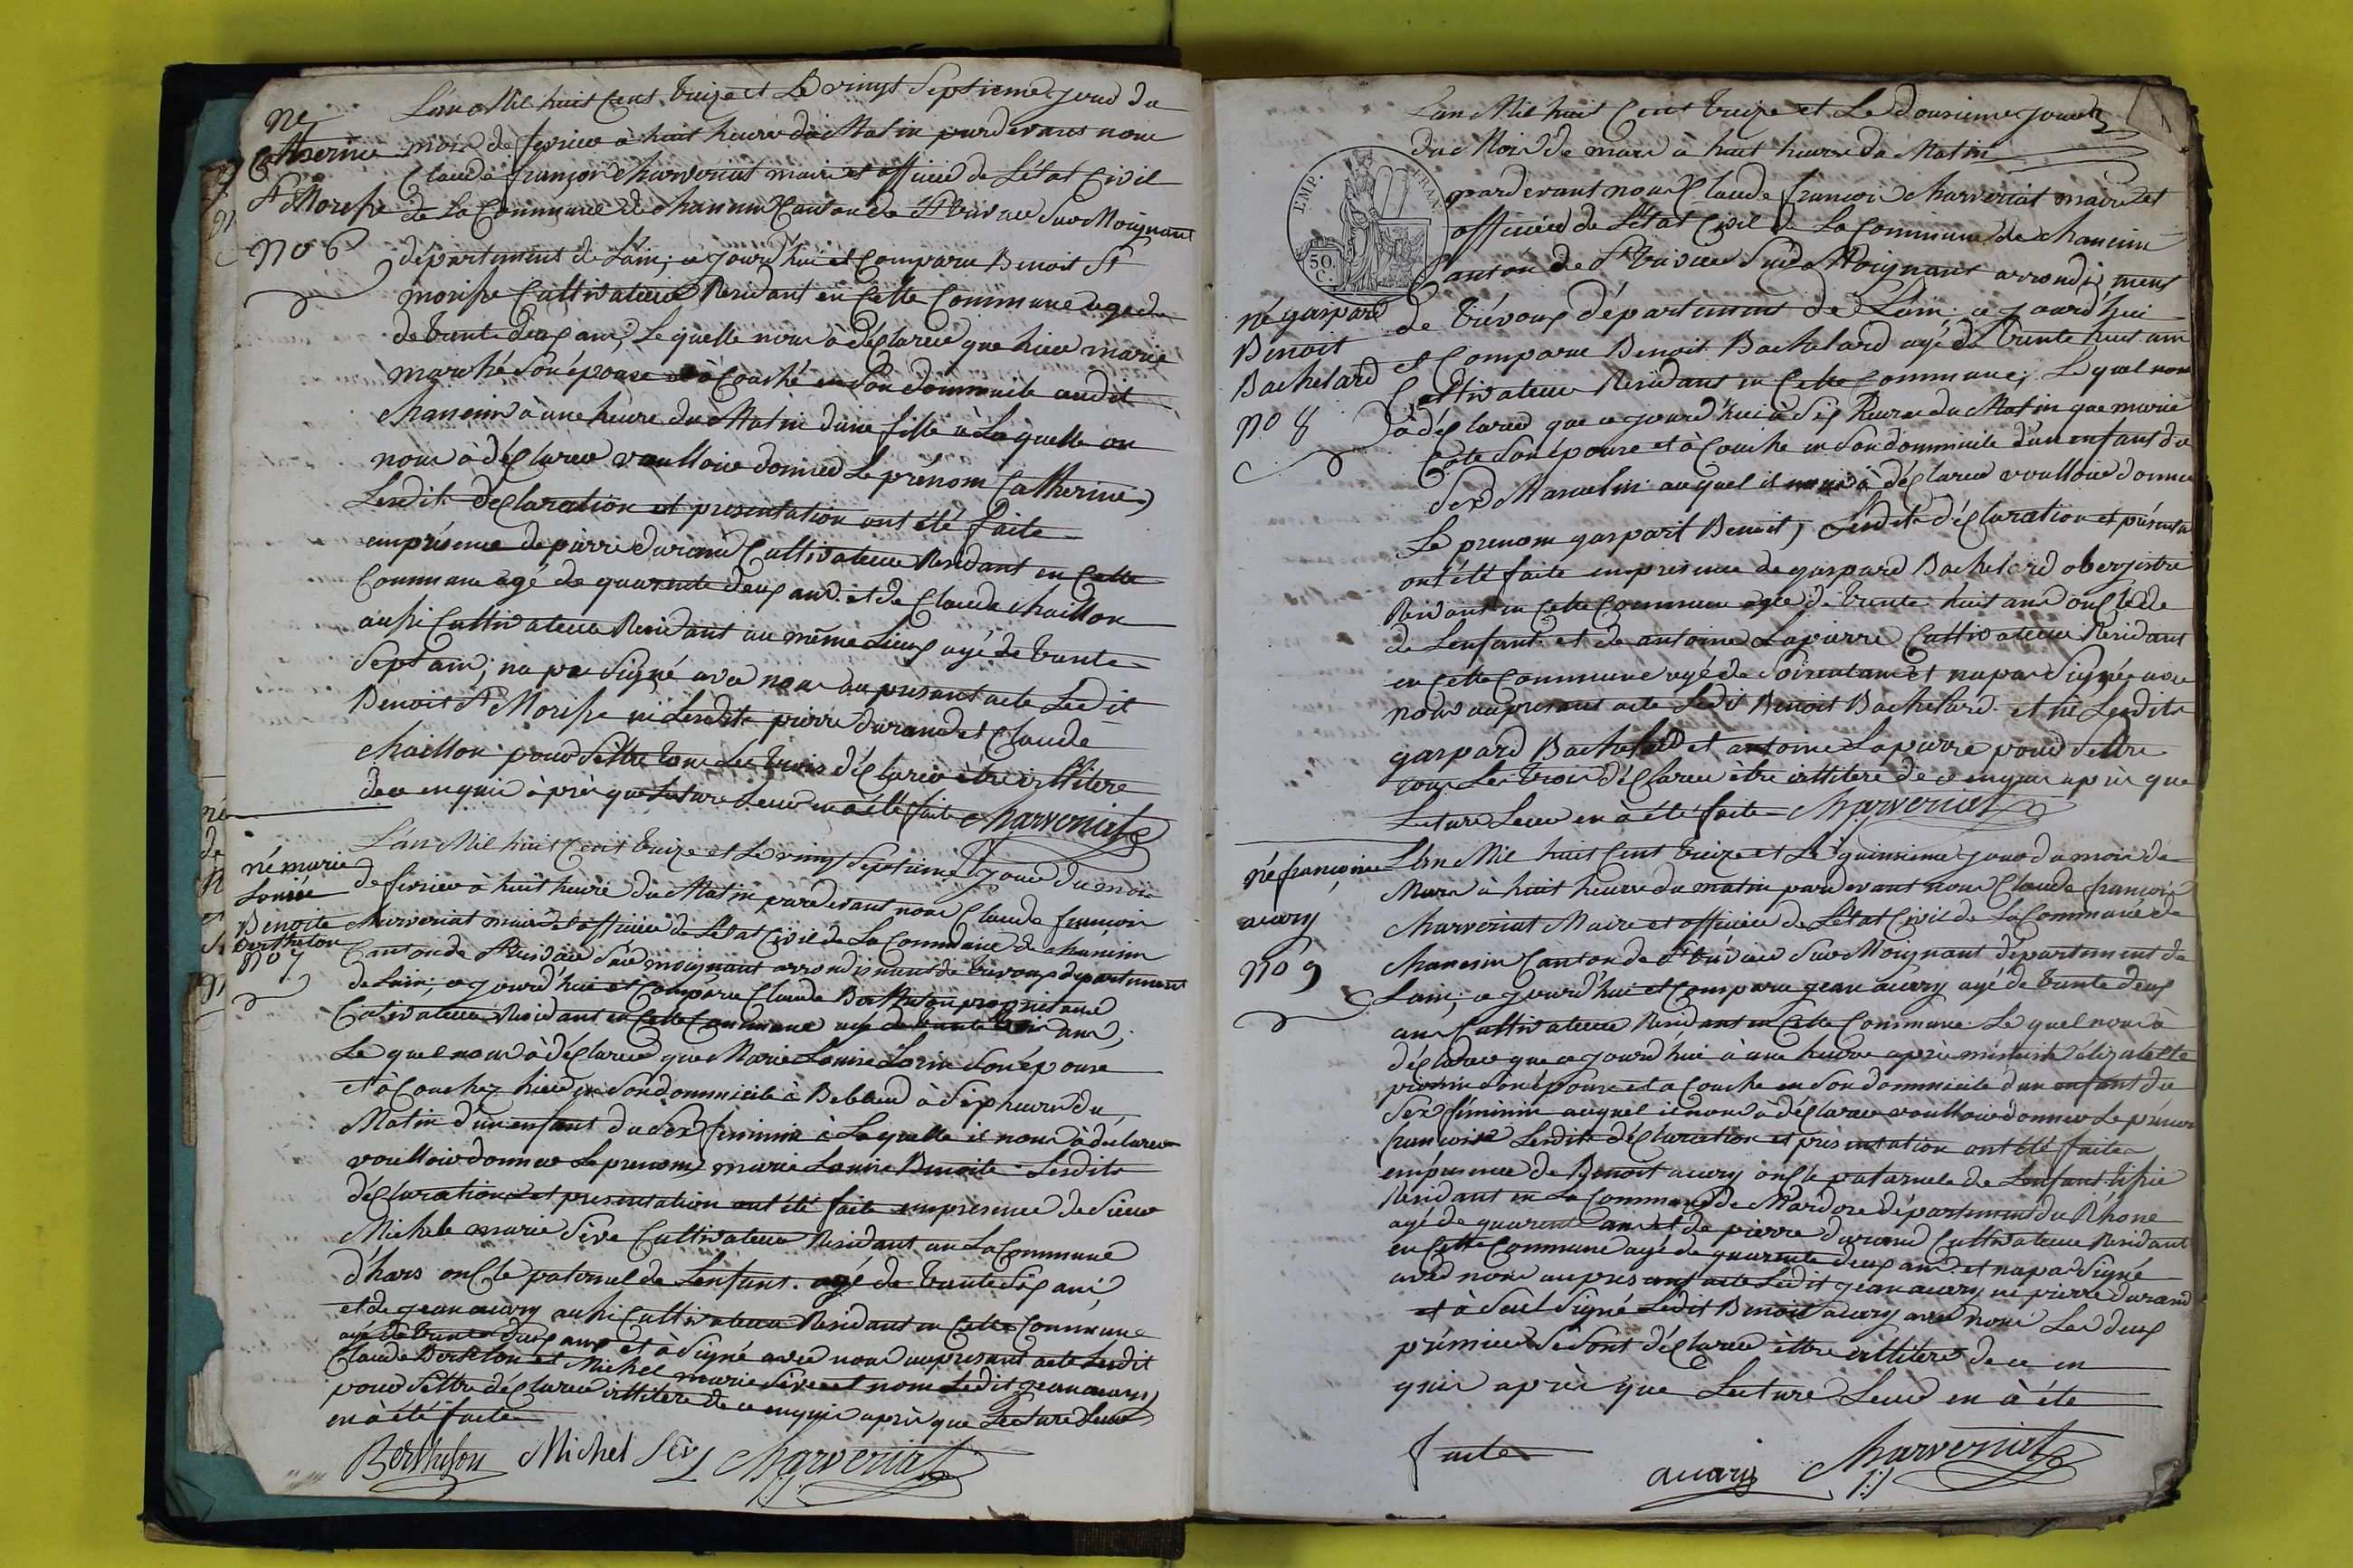 né
Catherine
St Morisse
No 6
L'an Mil huit Cent treize et Le vingt Septieme jour du
mois de fevrier à huit heure du Matin pardevant nous
Claude françois Charveriat maire et officier de L'état Civil
de La Commune de chaneins Canton de St trivier Sur Moignant
département de L'ain; ce jourd'hui et Comparu Benoit St
morisse Cultivateur Residant en Cette Commune agé de
de trente deux ans, Le quelle nous à déClarer que hier marie
marché Son épouse à Couché en Son dommicile audit
chaneins à une heure du Matin d'une fille à Laquelle on
nous à déClarer voulloir donner Le prénom Catherine,
Lesdit déClaration et presentation ont été faite
en présence de pierre durand Cultivateur Residant en Cette
Commune agé de quarente deux ans. et de Claude chaillon
aussi Cultivateur Residant au même Lieux agé de trente
Sept ans; na pas Signé avec nous au present acte Ledit
Benoit St Morisse ni Lesdit pierre durand et Claude
chaillon pour S'ettre tous Les trois déClarer être illitere
de ce enquis après que Lecture Leur en a été faite Charveriat
né marie
Louise
Benoite
berthelon
No 7
L'an Mil huit Cent treize et Le vingt Septieme jour du mois
de fevrier à huit heure du Matin pardevant nous Claude françois
Charveriat maire et officier de L'état Civil de La Commune de chaneins
Canton de St trivier Sur moignant arrondisment de trevoux departement
de L'ain; ce jourd'hui et Comparu Claude Berthelon propriétaire
Cultivateur Residant en Cette Commune agé de trente trois ans,
Le quel nous à déClarer que Marie Louise Son épouse
et à Couchez hier en Son dommicile à à Six heures du
Matin d'un enfant du Sex feminin à Laquelle il nous à déclarer
voulloir donner Le prenom marie Louise Benoite Lesdits
déClaration et presentation ont été faite en présence de Sieur
Michele marie Séve Cultivateur Residant an La Commune
d'hars onCle paternel de Lenfant. agé de trente Six ans,
et de jean aucry aussi Cultivateur Residant en Cette Commune
agé de trente deux ans et à Signé avec nous au present acte Ledit
Claude Berthelon et Michel marie Séve et nom Ledit jean aucry
pour S'ettre déClarer illitere de ce enquis après que Lecture Leur
en à été faite
Berthelon Michel Sève Charveriat
EMP. FRAN.
50
C.
né gaspard
Benoit
Bachelard
No 8
L'an Mil huit Cent treize et Le dousieme jour
du Mois de mars à huit heures du Matin
pardevant nous Claude françois Charveriat maire et
officier de L'état Civil de La Commune de chaneins
Canton de St trivier Sur Moignant arrondisment
de trévoux département de L'ain; ce jourd'hui
et Comparu Benoit Bachelard agé de trente huit ans
Cultivateur Residant en Cette Commune; Lequel nous
à déClarer que ce jourd'hui à Six heures du Matin que marie
Cote Son épouse et à Couche en Son dommicile d'un enfant du
Sex Masculin auquel il nous à déClarer voulloir donner
Le prenom gaspart Benoit, Lesdit déClaration et présenta
ont été faite en présence de gaspard Bachelard obergiste
Residant en Cette Commune agé de trente huit ans onCle de
de Lenfant et de antoine Lapierre Cultivateur Residant
en Cette Commune agé de Soixentans et na pas Signé avec
nous au present acte Ledit Benoit Bachelard et ni Lesdits
gaspard Bachelard et antoine Lapierre pour S'ettre
tous Les trois déClarer être illitere de ce enquis après que
Lecture Leur en à été faite Charveriat
né françoise
aucry
No 9
L'an Mil huit Cent treize et Le quinsieme jour du mois de
Mars à huit heures du matin pardevant nous Claude françois
Charveriat Maire et officier de L'état Civil de La Commune de
chaneins Canton de St trivier Sur Moignant département de
L'ain; ce jourd'hui et Comparu jean aucry agé de trente deux
ans Cultivateur Residant en Cette Commune. Le quel nous à
déClarer que ce jourd'hui à une heure après minuit élizabette
Son épouse et a Couche en Son dommicile d'un enfant du
Sex féminin auquel il nous à déClarer voulloir donner Le prénom
françoise Lesdit déClaration et présentation ont été faite
en présence de Benoit aucry onCle paternele de Lenfant
Residant en La Commune de Mardore département du Rhône
agé de quarente ans et de pierre durand Cultivateur Residant
en Cette Commune agé de quarente deux ans. et na pas Signé
avec nous au present acte Ledit jean aucry ni pierre durand
et à Seul Signé Ledit Benoit aucry avec nous Les deux
prémier Se Sont déClarer êttre illitere de ce en
quis après que Lecture Leur en à été
faite
aucry Charveriat